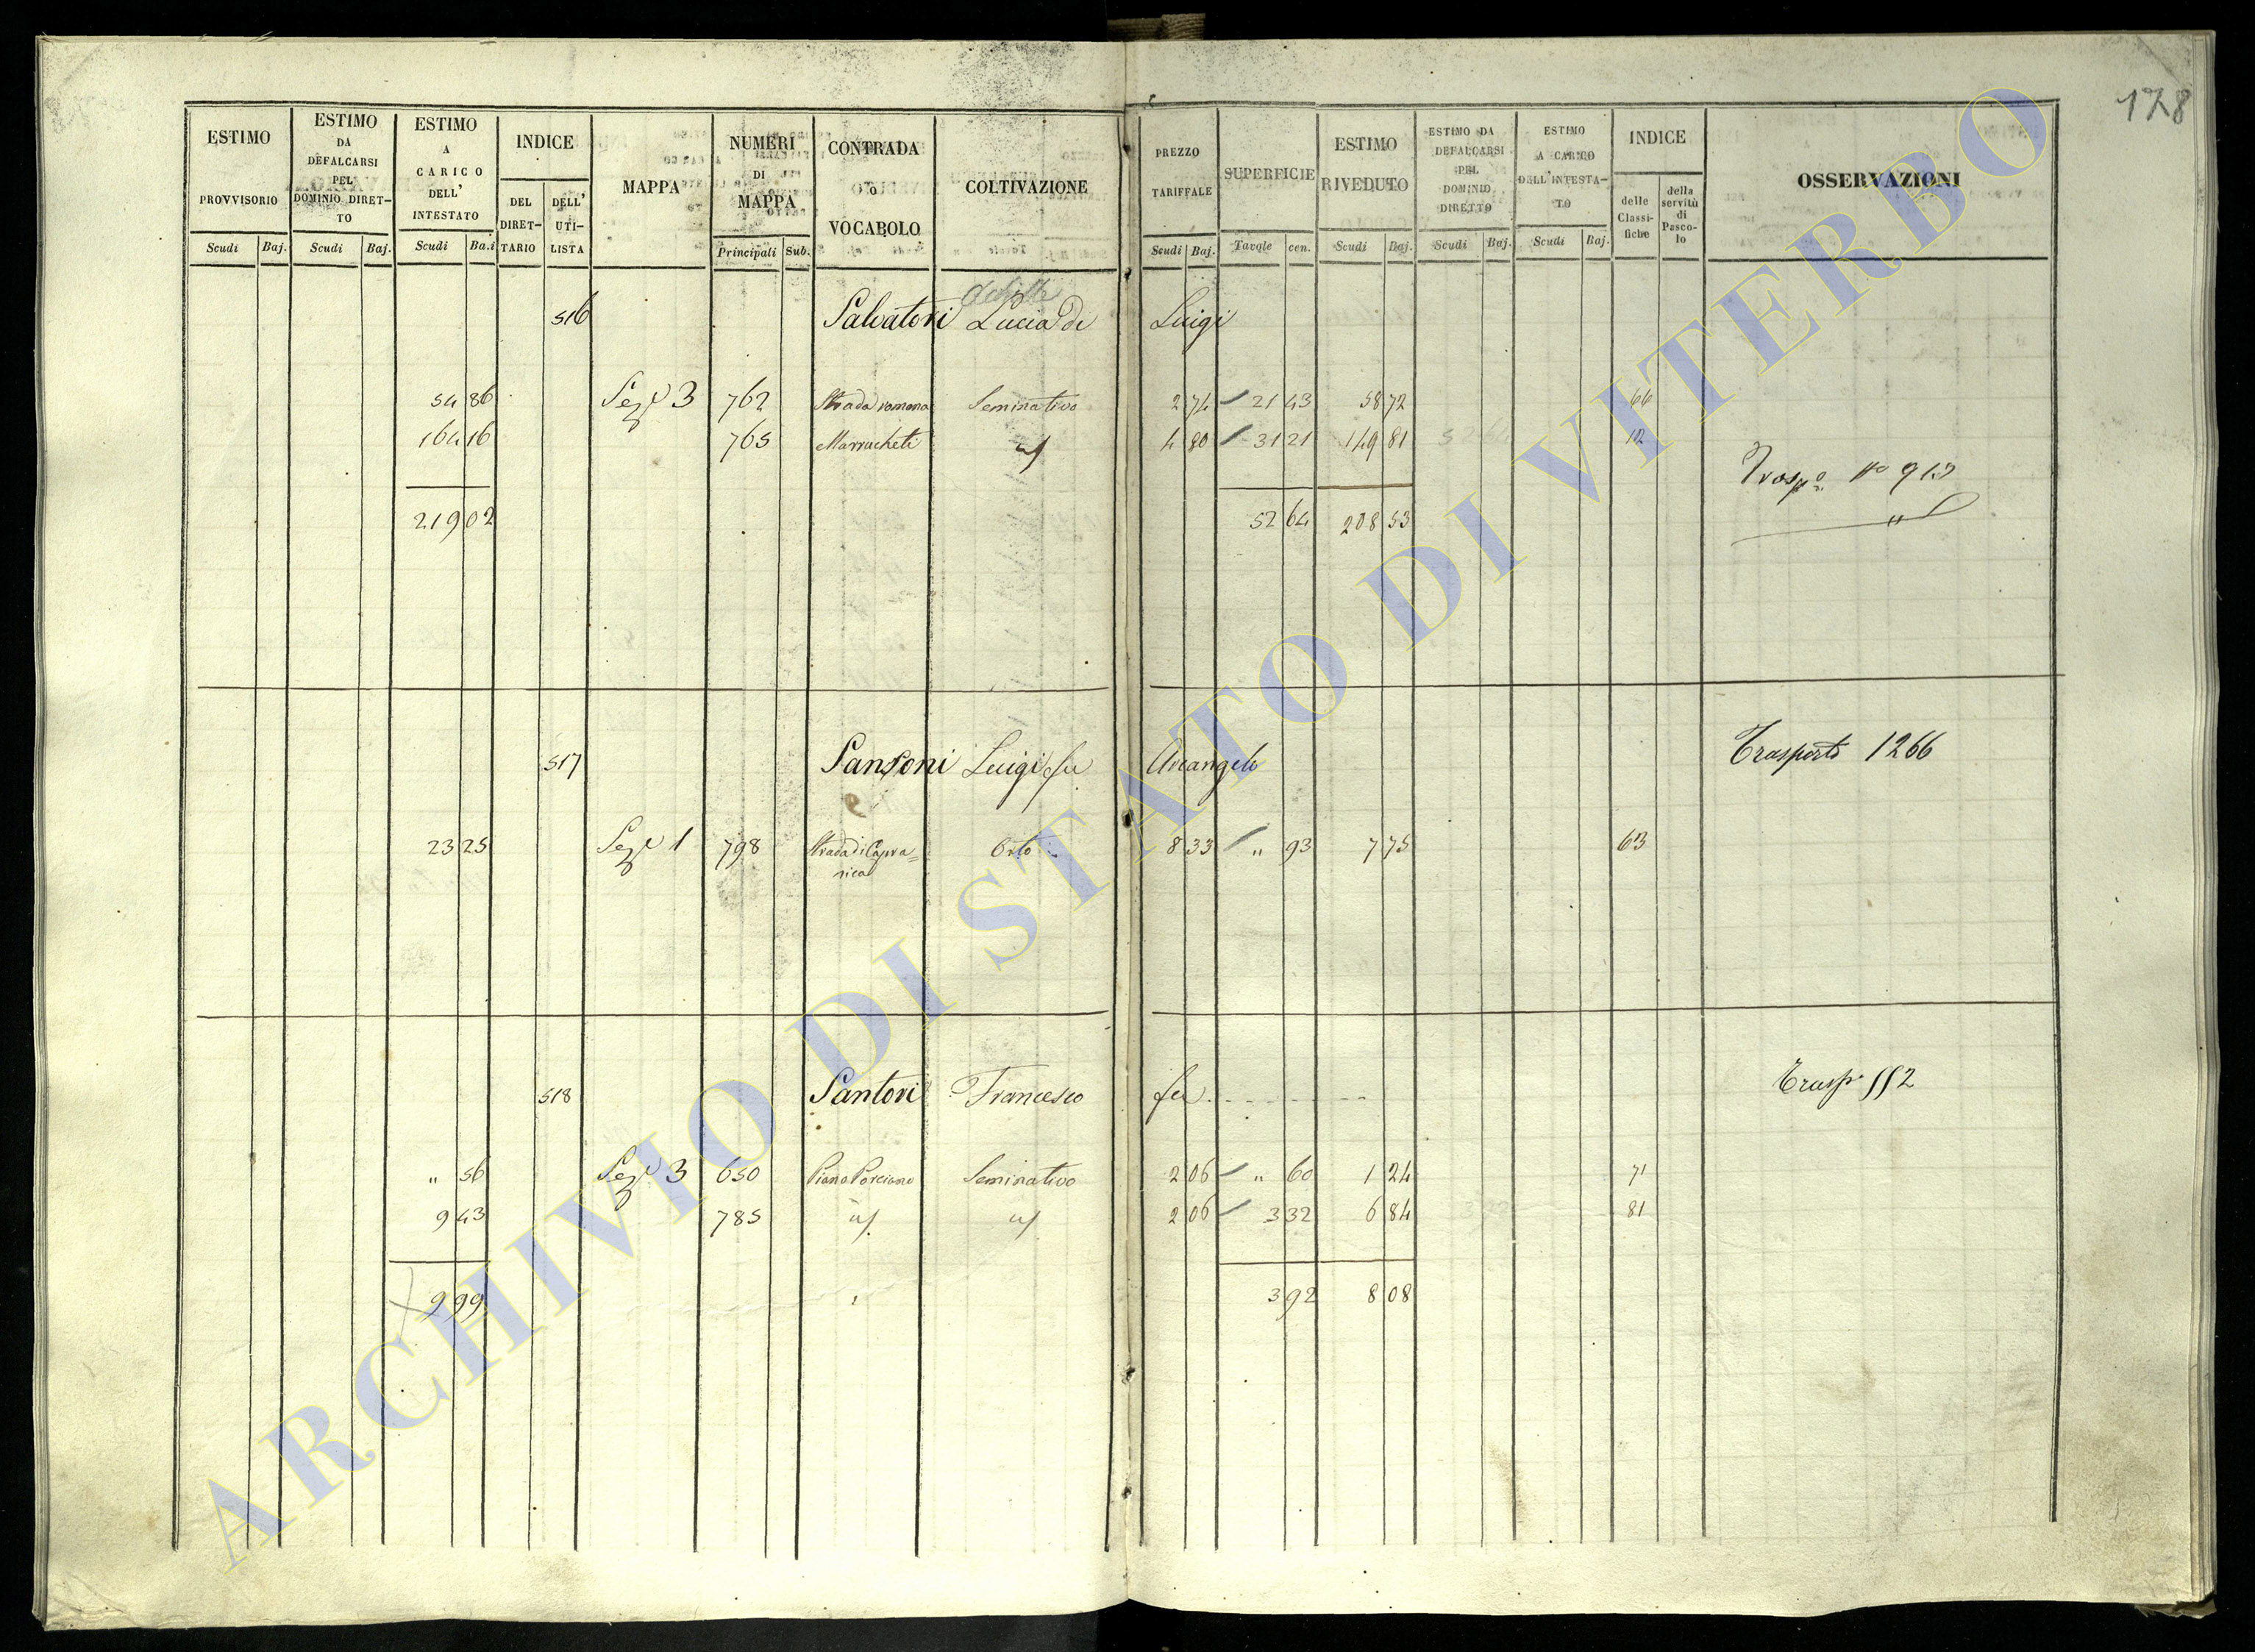 178
ESTIMO PROVVISORIO
Scudi Baj.
ESTIMO DA DEFALCARSI PEL DOMINIO DIRETTO
Scudi Baj.
ESTIMO A CARICO DELL' INTESTATO
Scudi Ba.i
INDICE
DEL DIRETTARIO
DELL' UTILISTA
MAPPA
NUMERI DI MAPPA
Principali Sub.
CONTRADA o VOCABOLO
COLTIVAZIONE
PREZZO TARIFFALE
Scudi Baj.
SUPERFICIE
Tavole cen.
ESTIMO RIVEDUTO
Scudi Baj.
ESTIMO DA DEFALCARSI PEL DOMINIO DIRETTO
Scudi Baj.
ESTIMO A CARICO DELL'INTESTATO
Scudi Baj.
INDICE
delle Classifiche
della servitù di Pascolo
OSSERVAZIONI
516 Salvatori Lucia di Luigi
54 86 Sez.e 3 762 Strada romana Seminativo 2 74 21 43 58 72 66
164 16 765 Marrucheti " 4 80 31 21 149 81 12
Trasp.o No 913
219 02 52 64 208 53
517 Sansoni Luigi fu Arcangelo Trasporto 1266
23 25 Sez.e 1 798 Strada di Capra=
nica Orto 8 33 " 93 7 75 63
518 Santori Francesco fu - - - - - - - - Trasp. 552
" 56 Sez.e 3 650 Piano Porciano Seminativo 2 06 " 60 1 24 71
9 43 785 " " 2 06 3 32 6 84 81
9 99 3 92 8 08
ARCHIVIO DI STATO DI VITERBO